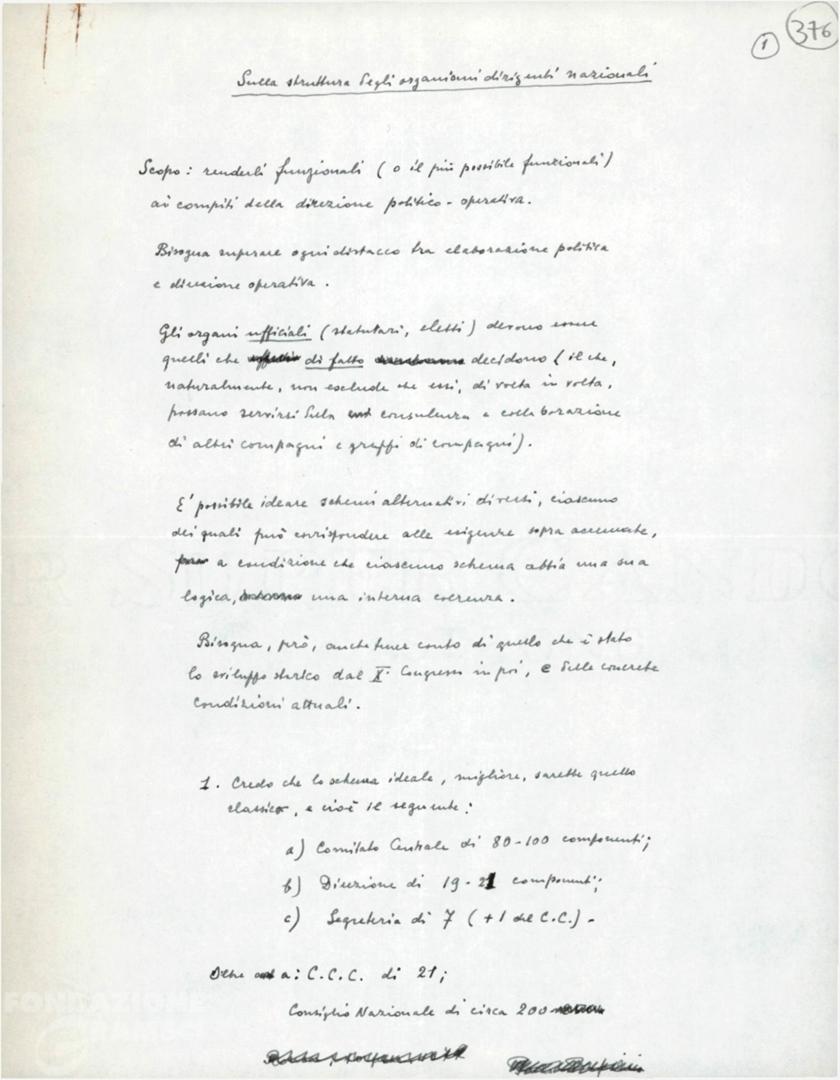 1 376
Sulla struttura degli organismi dirigenti nazionali
Scopo: renderli funzionali (o il più possibile funzionali)
ai compiti della direzione politico-operativa.
Bisogna superare ogni distacco tra elaborazione politica
e direzione operativa.
Gli organi ufficiali (statutari, eletti) devono essere
quelli che di fatto decidono (il che,
naturalmente, non esclude che essi, di volta in volta,
possano servirsi della consulenza e collaborazione
di altri compagni e gruppi di compagni).
E' possibile ideare schemi alternativi diversi, ciascuno
dei quali può corrispondere alle esigenze sopra accennate,
a condizione che ciascuno schema abbia una sua
logica, una interna coerenza.
Bisogna, però, anche tener conto di quello che è stato
lo sviluppo storico dal X° Congresso in poi, e delle concrete
condizioni attuali.
1. Credo che lo schema ideale, migliore, sarebbe quello
classico, e cioè il seguente:
a) Comitato Centrale di 80-100 componenti;
b) Direzione di 19-21 componenti;
c) Segreteria di 7 (+1 del C.C.)-
Oltre a: C.C.C. di 21;
Consiglio Nazionale di circa 200
FONDAZIONE